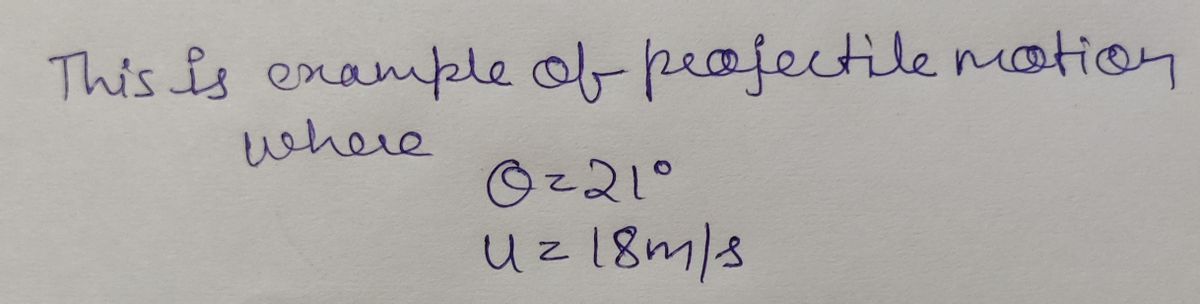 This is example of projectile motion
where
θ=21°
u=18m/s